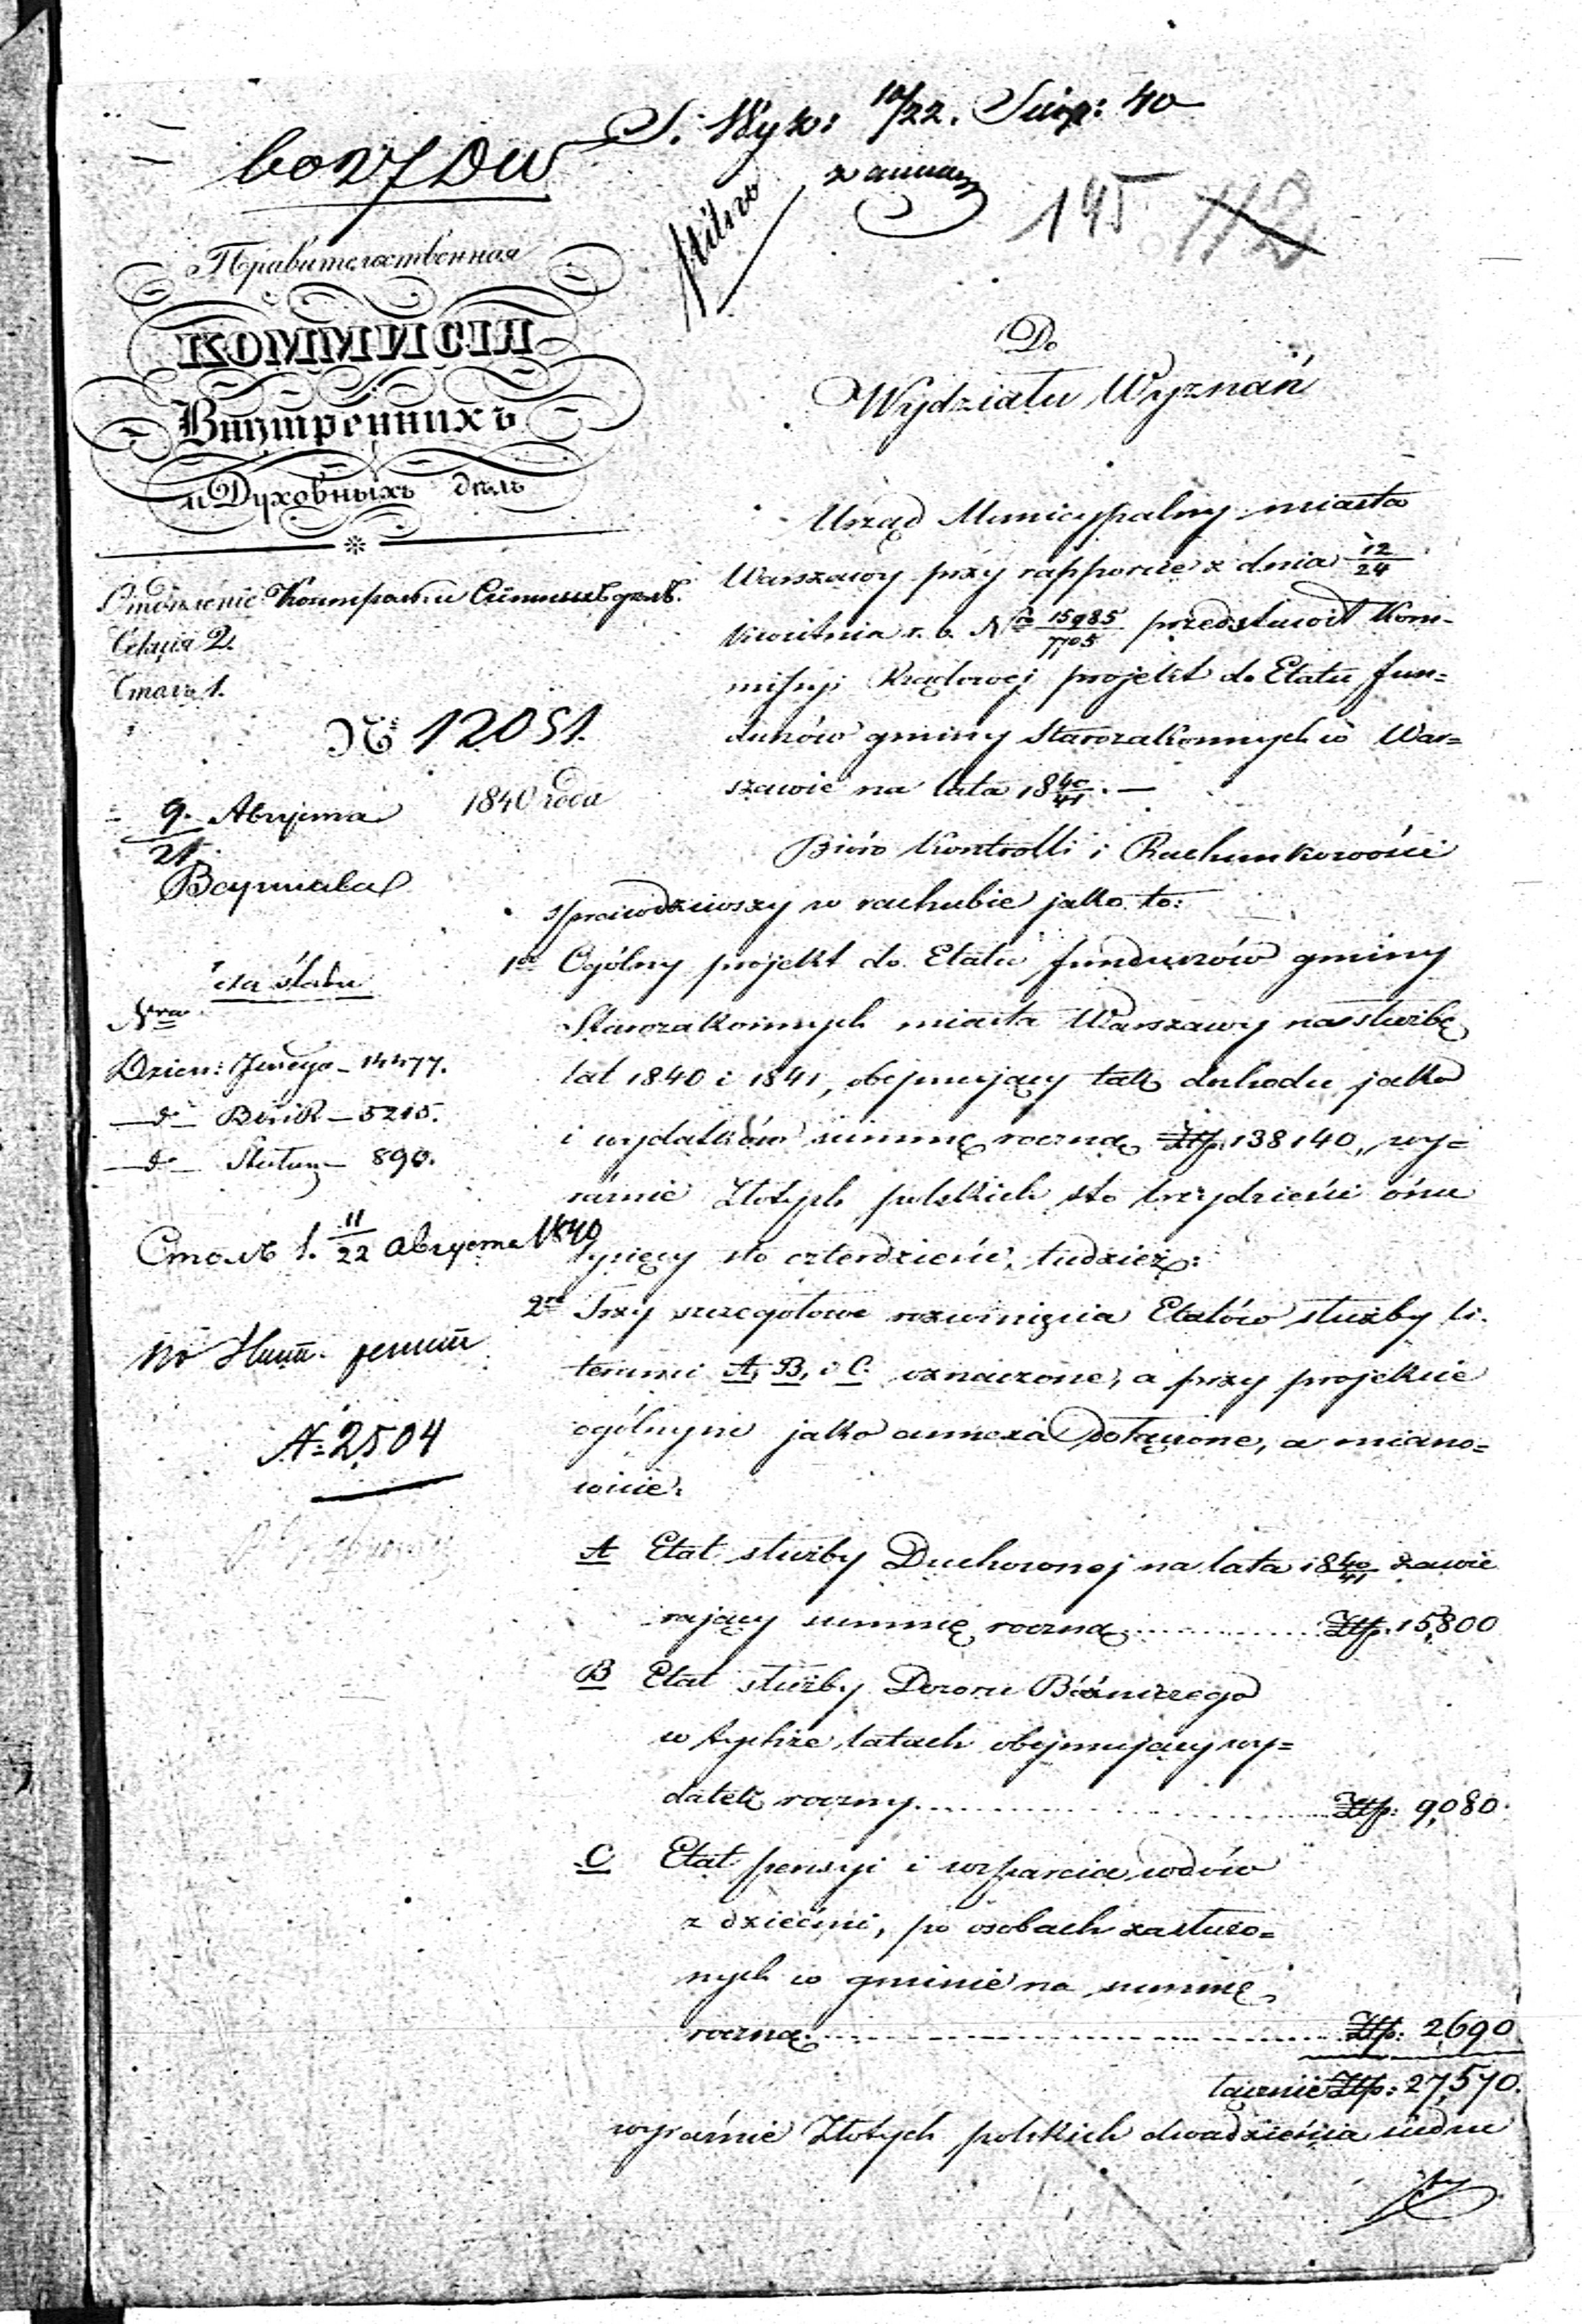 S. Wyzn: 10/22. Sierp: 40
145 112
Правительственная
КОММИСІЯ
Внутреннихъ
и Духовныхъ дѣлъ
Отдѣленіе Контроли и
Секція 2.
Столъ 1.
№ 12051.
9/21. Августа 1840 года
Варшава
Nra
Dzien: Jnego – 14477.
– do – BKiR – 5215.
– do – 890.
Столъ 1. 11/22 Августа 1840
N: 2504
Do
Wydziału Wyznań
Urząd Municypalny miasta
Warszawy przy rapporcie z dnia 12/24
Kwietnia r. b. No 15985/7705 przedstawił Kom-
missyi Rządowej projekt do Etatu fun=
duszów gminy Starozakonnych w War=
szawie na lata 1840/41. —
Bióro Kontrolli i Rachunkowości
sprawdziwszy w rachubie jako to:
1o Ogólny projekt do Etatu funduszów gminy
Starozakonnych miasta Warszawy na służbę
lat 1840 i 1841, obejmujący tak dochodu jako
i wydatków summę roczną Złp. 138140, wy=
raźnie Złotych polskich sto trzydzieści ośm
tysięcy sto czterdzieści, tudzież:
2re Trzy szczegółowe rozwinięcia Etatów służby li-
terami A, B, i C. oznaczone, a przy projekcie
ogólnym jako annexa dołączone, a miano=
wicie:
A Etat służby Duchownej na lata 1840/41 zawie
rający summę roczną ............ Złp. 15,800
B Etat służby Dozoru Bóżniczego
w tychże latach obejmujący wy=
datek roczny ............ Złp: 9,080.
C Etat pensyi i wsparcia wdów
z dziećmi, po osobach zasłużo=
nych w gminie na summę
roczną ............ Złp: 2,690
łącznie Złp: 27,570.
wyraźnie Złotych polskich dwadzieścia siedm